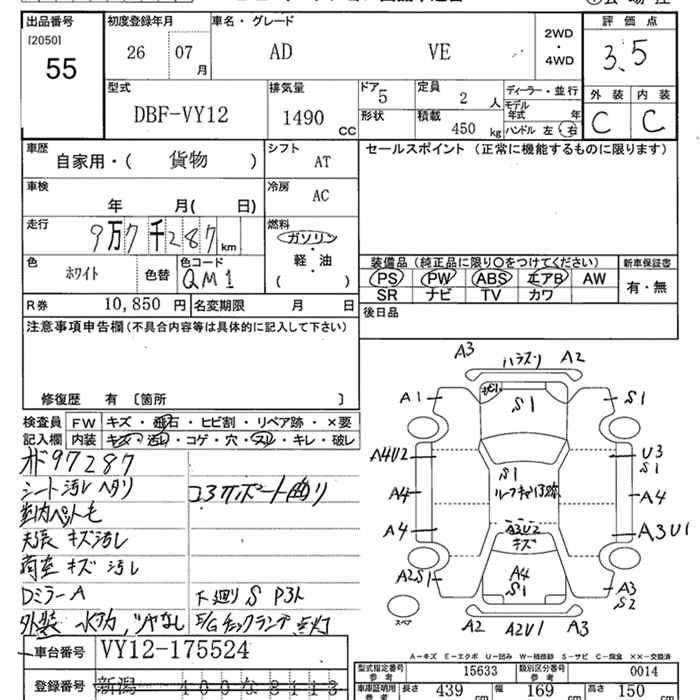 出品番号
[2050]
55
初度登録年月
26 07月
車名・グレード
AD VE
2WD
・
4WD
評価点
3.5
型式
DBF-VY12
排気量
1490 CC
ドア 5
形状
定員 2 人
積載 450 kg
ディーラー・並行
モデル年式 年
ハンドル 左 右
外装 内装
C C
車歴 自家用・( 貨物 )
シフト AT
セールスポイント (正常に機能するものに限ります)
車検 年 月( 日)
冷房 AC
走行 9万7千287km
燃料
ガソリン
・
軽・油
( )
色 ホワイト 色替
色コード QM1
R券 10,850 円
名変期限 月 日
装備品(純正品に限り○をつけてください)
PS PW ABS エアB AW
SR ナビ TV カワ
新車保証書
有・無
後日品
注意事項申告欄(不具合内容等は具体的に記入して下さい)
修復歴 有〔箇所 〕
検査員記入欄
FW キズ・飛石・ヒビ割・リペア跡・×要
内装 キズ・汚レ・コゲ・穴・スレ・キレ・破レ
オド97287
シート汚レ ヘタリ
車内ペット毛
天張 キズ汚レ
荷室 キズ 汚レ
Dミラー A
外装 水アカ、ツヤなし
コアサポート曲り
下廻りS
E/Gチェックランプ 点灯
A3 ハズリ A2
A1 S1 S1
A4U2 U3 S1
S1
A4 A4
A4 A3U2 A3U1
キズ
A2S1 A4 S1 A3 S2
スペア
A2 A2U1 A3
A-キズ E-エクボ U-凹ミ W-補修跡 S-サビ C-腐食 XX-交換済
車台番号 VY12-175524
登録番号 新潟 400 な 8113
型式指定番号 参考 15633
類別区分番号 参考 0014
車庫証明用 参考 長さ 439 cm 幅 169 cm 高さ 150 cm